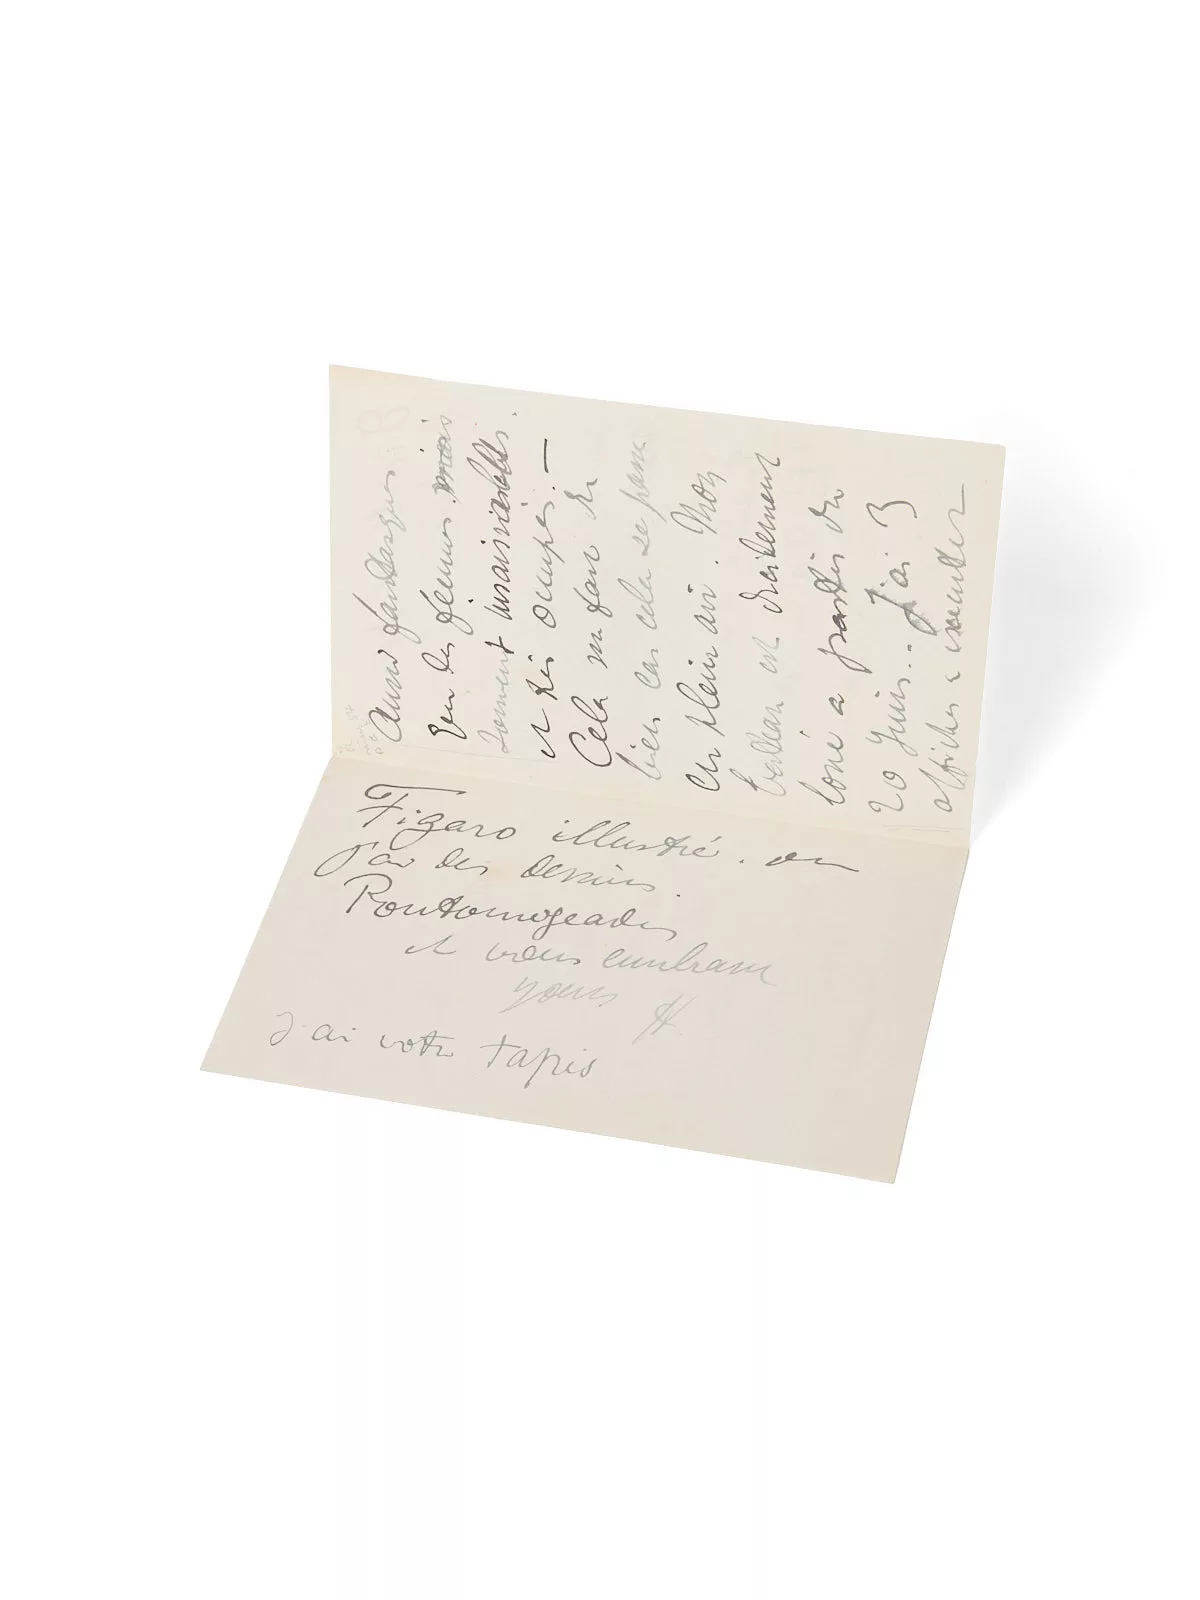 aussi fantasques
que des femmes mais
insaisissables.
et très occupés. —
Cela me fait du
bien car cela se passe
en plein air. Mon
bateau est decidement
loué a partir du
20 Juin... J'ai 3
affiches a executer
Figaro illustré. ou
j'ai des dessins.
et vous embrasse
yours H.
J'ai votre tapis